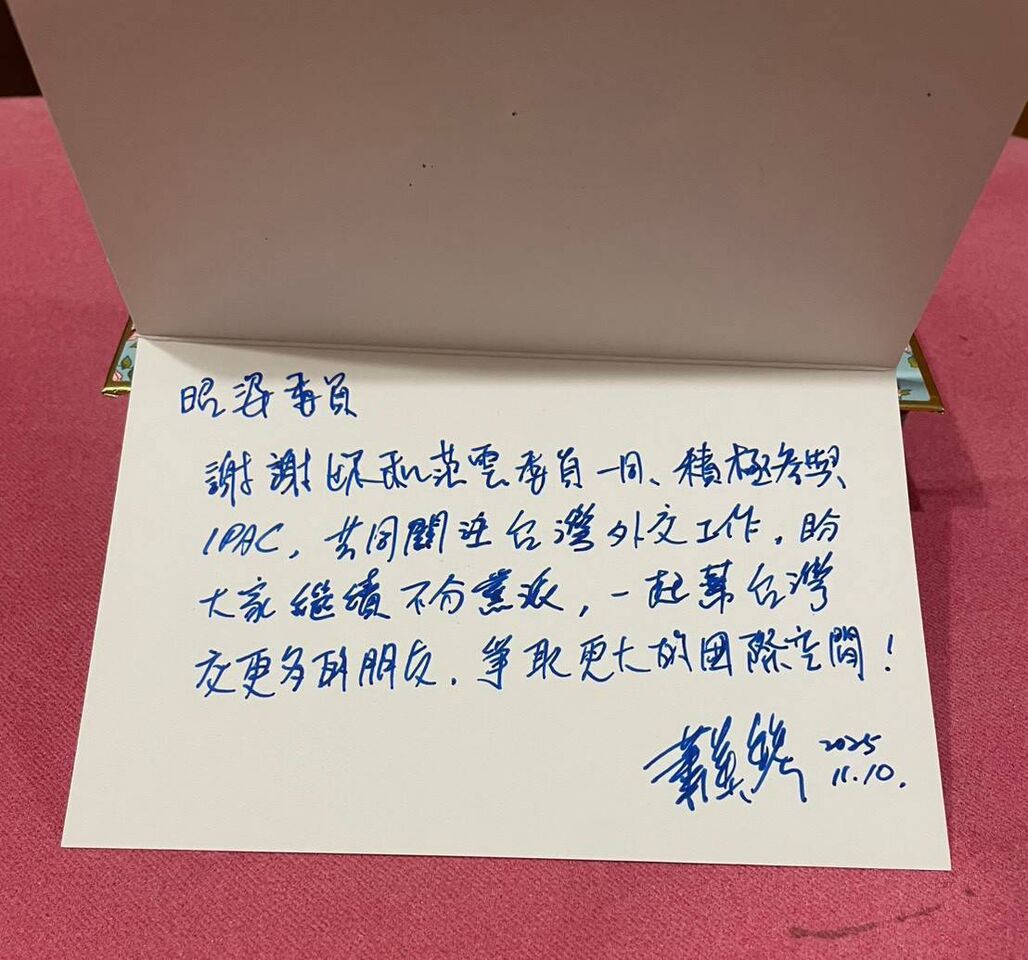 昭姿委員
謝謝您和范雲委員一同、積極參與
IPAC, 共同關注台灣外交工作, 盼
大家繼續不分黨派, 一起幫台灣
交更多的朋友, 爭取更大的國際空間!
蕭美琴 2025
11.10.